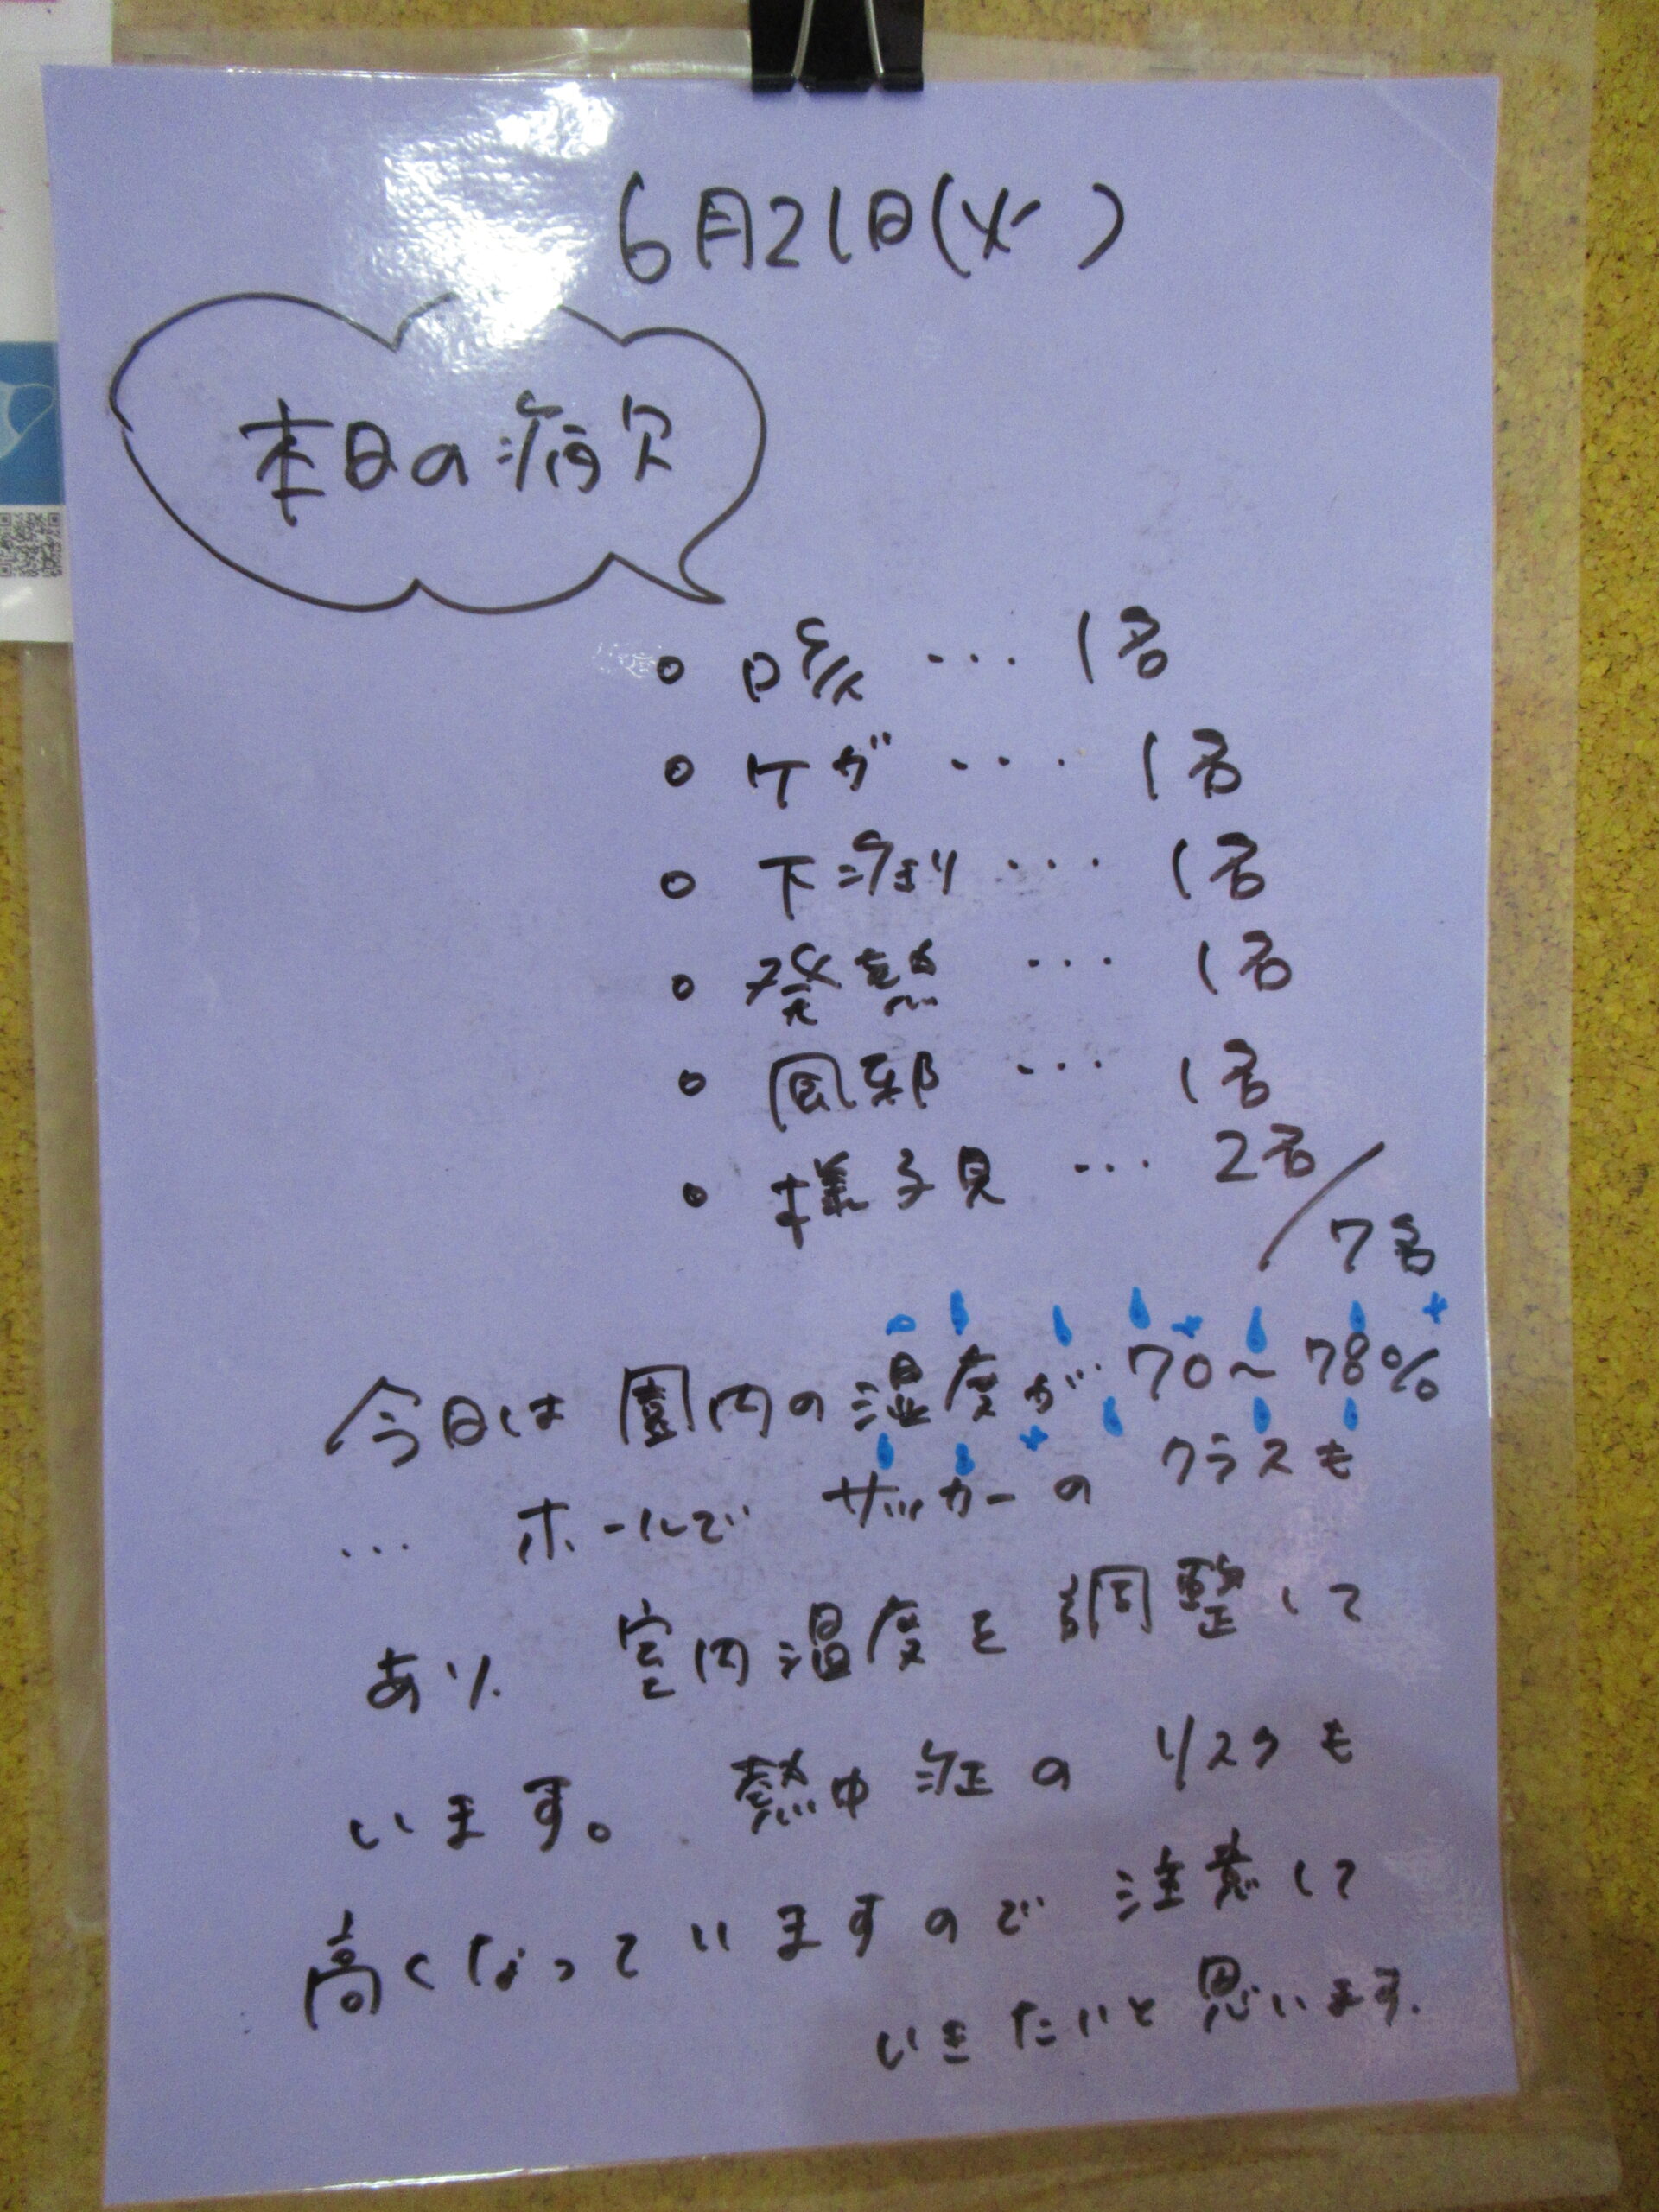 6月21日(火)
本日の病欠
• 咳 ... 1名
• ケガ ... 1名
• 下痢 ... 1名
• 発熱 ... 1名
• 風邪 ... 1名
• 様子見 ... 2名/
7名
今日は園内の湿度が70~78%
... ホールでサッカーのクラスも
あり、室内温度を調整して
います。熱中症のリスクも
高くなっていますので注意して
いきたいと思います.